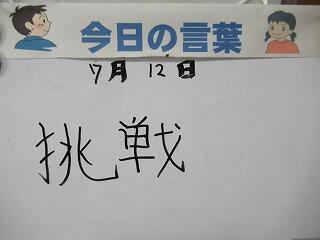 今日の言葉
7月12日
挑戦